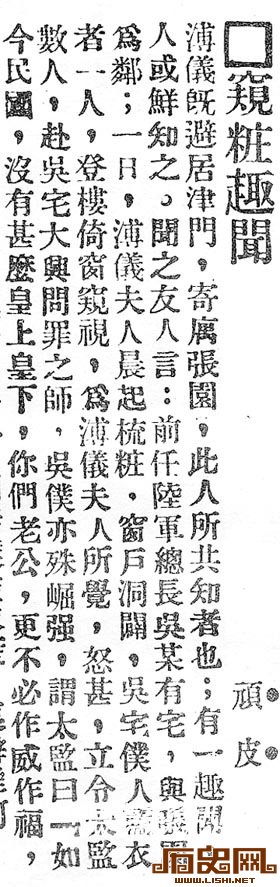 □窺粧趣聞
頑皮
溥儀旣避居津門，寄寓張園，此人所共知者也；有一趣聞
人或鮮知之。聞之友人言：前任陸軍總長吳某有宅，與園
爲鄰；一日，溥儀夫人晨起梳粧，窗戶洞闢，吳宅僕人衣
者一人，登樓倚窗窺視，爲溥儀夫人所覺，怒甚，立令監
數人，赴吳宅大興問罪之師，吳僕亦殊崛强，謂太監曰「如
今民國，沒有甚麽皇上皇下，你們老公，更不必作威作福，
历史网
WWW.LISHI.NET